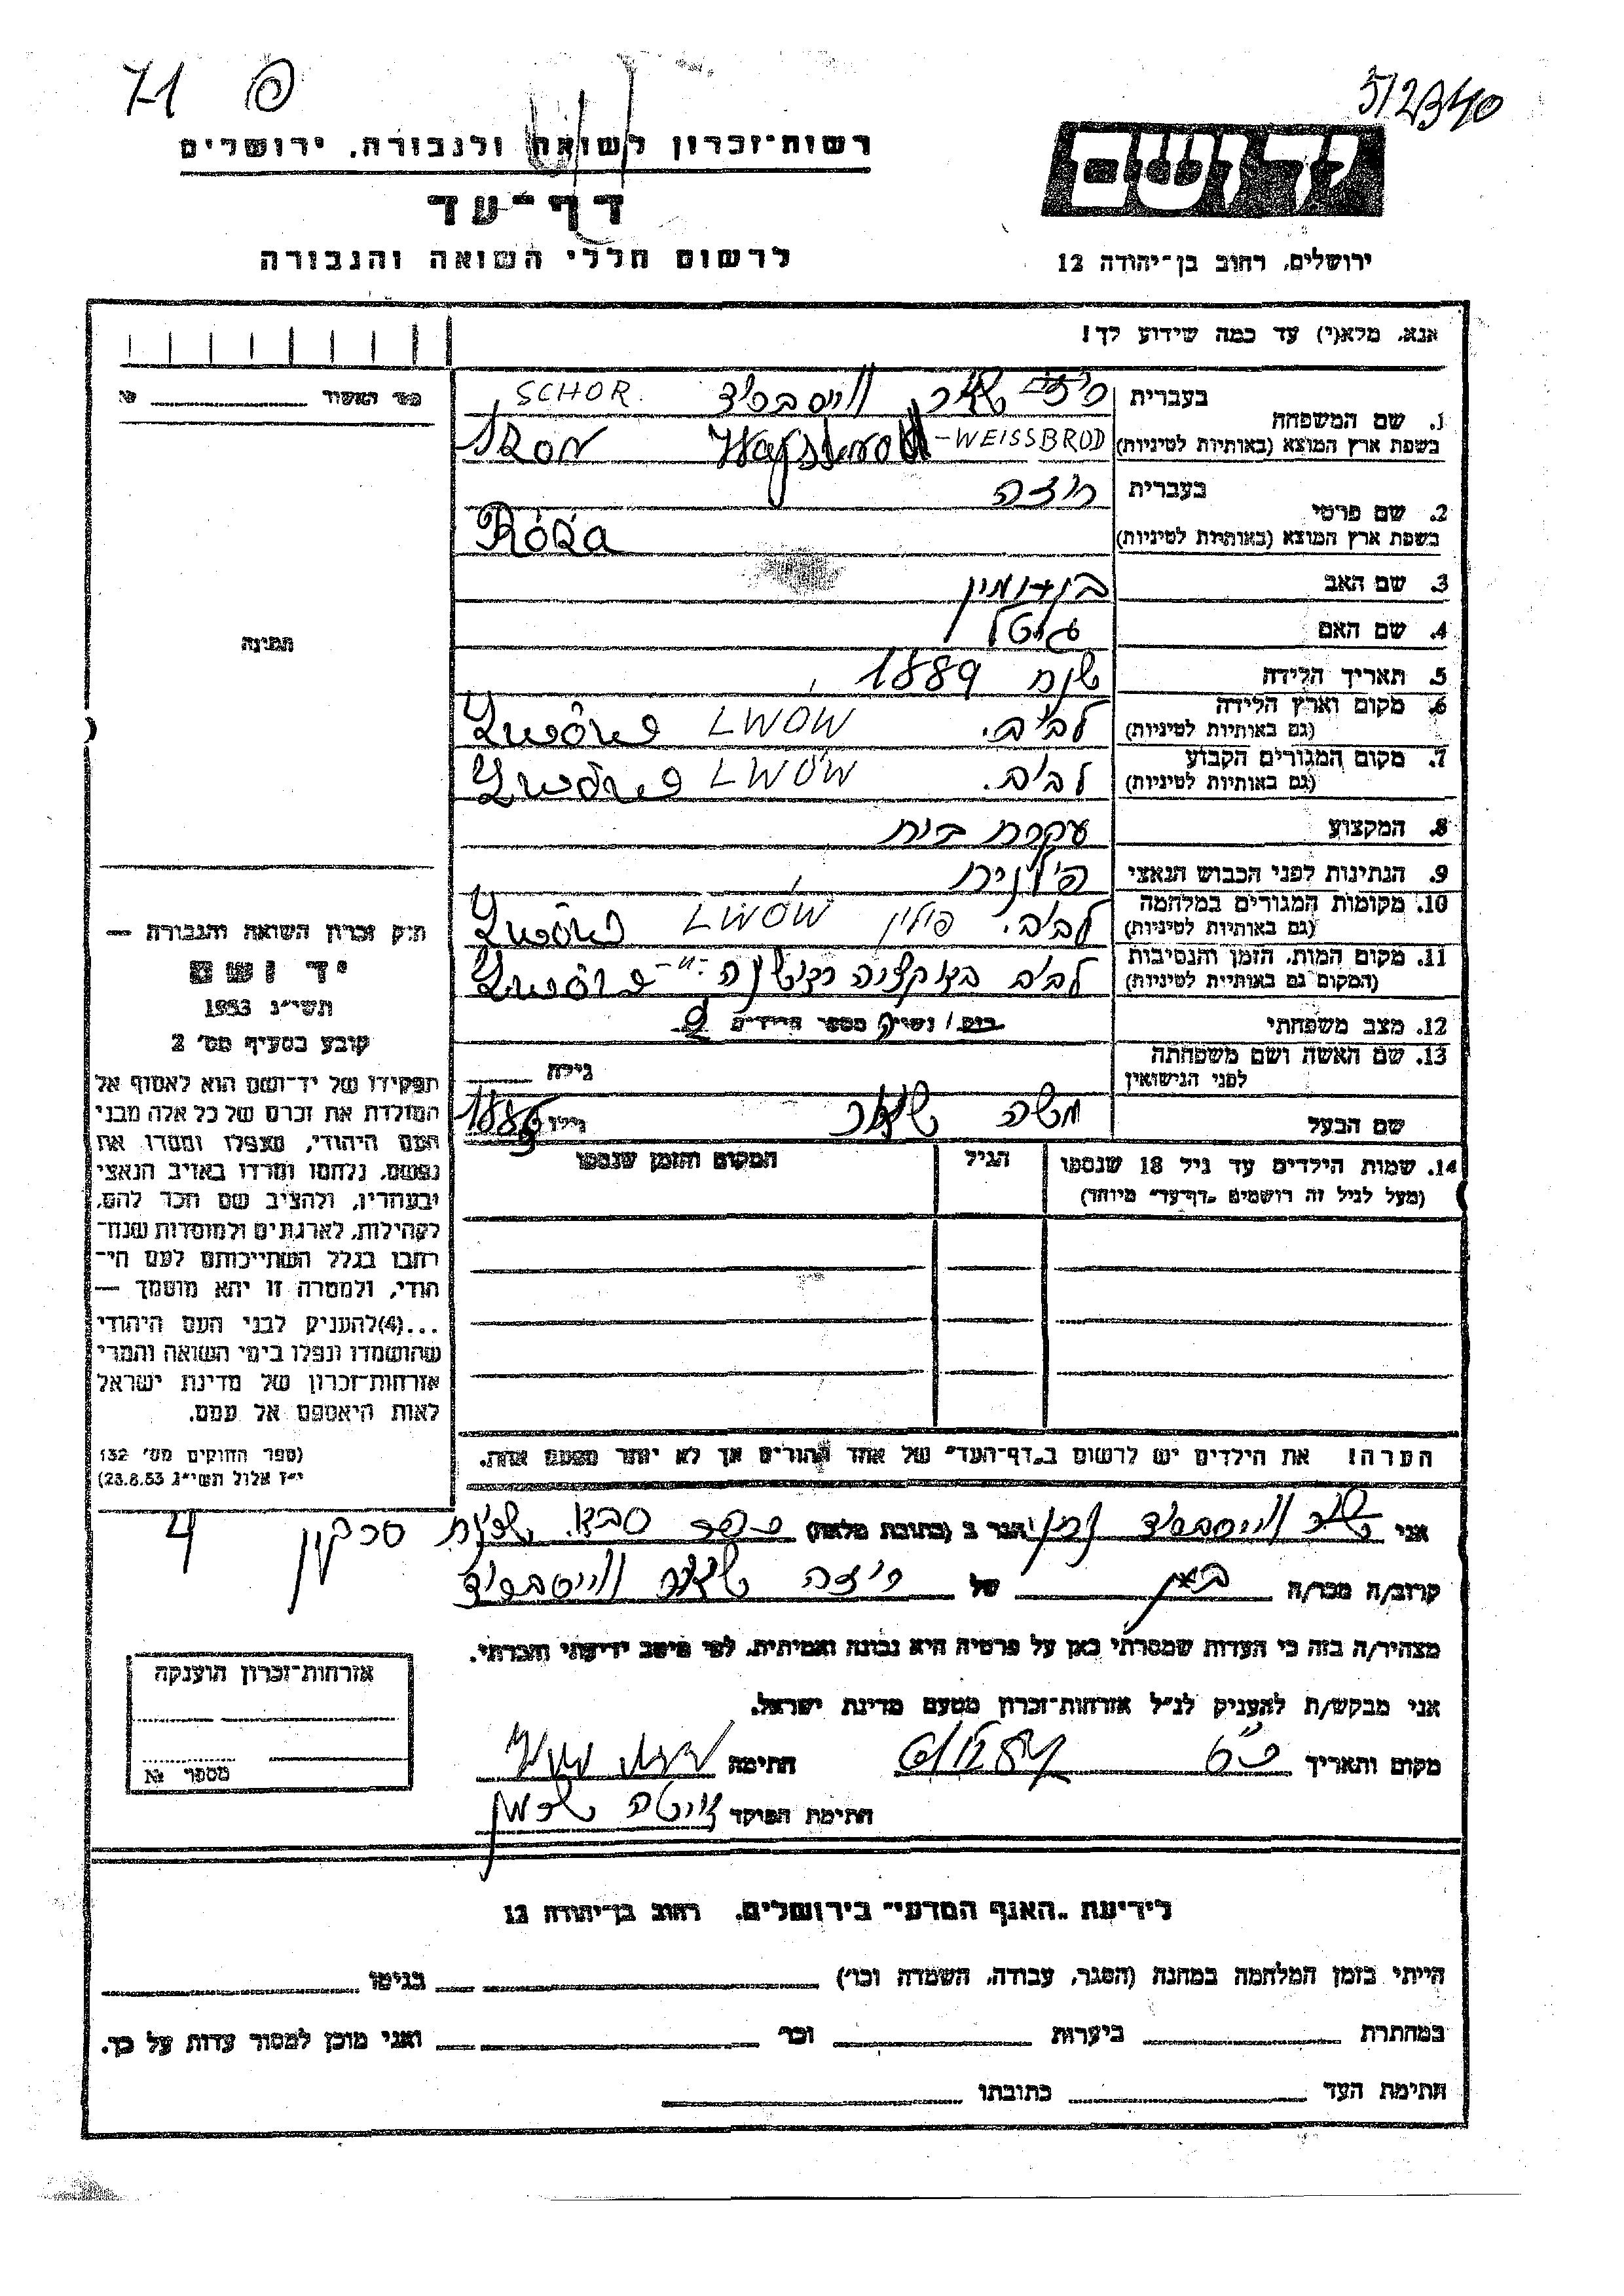 71
512340
רשות־זכרון לשואה ולגבורה, ירושלים
יד ושם
דף־עד
לרשום חללי השואה והגבורה
ירושלים, רחוב בן־יהודה 12
אנא, מלא(י) עד כמה שידוע לך!
מס׳ האשור №
1. שם המשפחה
בעברית שאר וייסברוד SCHOR.
בשפת ארץ המוצא (באותיות לטיניות) WEISSBROD
2. שם פרטי
בעברית רוזה
בשפת ארץ המוצא (באותיות לטיניות) Róża
3. שם האב בנימין
4. שם האם גיטל
5. תאריך הלידה שנת 1889
6. מקום וארץ הלידה לבוב. LWÓW
(גם באותיות לטיניות)
7. מקום המגורים הקבוע לבוב. LWÓW
(גם באותיות לטיניות)
8. המקצוע עקרת בית
9. הנתינות לפני הכבוש הנאצי פולנית
10. מקומות המגורים במלחמה לבוב. פולין LWÓW
(גם באותיות לטיניות)
11. מקום המות, הזמן והנסיבות לבוב באקציה ראשונה
(המקום גם באותיות לטיניות)
12. מצב משפחתי רווק/ נשוי/ מספר הילדים
13. שם האשה ושם משפחתה
לפני הנישואין גילה
שם הבעל משה שאר גילו
14. שמות הילדים עד גיל 18 שנספו הגיל המקום והזמן שנספו
(מעל לגיל זה רושמים „דף־עד״ מיוחד)
הערה! את הילדים יש לרשום ב„דף־העד״ של אחד ההורים אך לא יותר מפעם אחת.
תמונה
חוק זכרון השואה והגבורה —
יד ושם
תשי״ג 1953
קובע בסעיף מס׳ 2
תפקידו של יד־ושם הוא לאסוף אל
המולדת את זכרם של כל אלה מבני
העם היהודי, שנפלו ומסרו את
נפשם, נלחמו ומרדו באויב הנאצי
ובעוזריו, ולהציב שם וזכר להם,
לקהילות, לארגונים ולמוסדות שנח־
רבו בגלל השתייכותם לעם הי־
הודי, ולמטרה זו יהא מוסמך —
...(4)להעניק לבני העם היהודי
שהושמדו ונפלו בימי השואה והמרי
אזרחות־זכרון של מדינת ישראל
לאות היאספם אל עמם.
(ספר החוקים מס׳ 132
י״ז אלול תשי״ג 23.8.53)
אני שאר וייסברוד הגר ב (כתובת מלאה) כפר סבא. שכונת
קרוב/ה מכר/ה של רוזה שאר וייסברוד
מצהיר/ה בזה כי העדות שמסרתי כאן על פרטיה היא נכונה ואמיתית, לפי מיטב ידיעתי והכרתי.
אני מבקש/ת להעניק לנ״ל אזרחות־זכרון מטעם מדינת ישראל.
מקום ותאריך כ״ס חתימה
חתימת הפוקד
אזרחות־זכרון הוענקה
מספר №
לידיעת „האגף המדעי״ בירושלים, רחוב בן־יהודה 12
הייתי בזמן המלחמה במחנה (הסגר, עבודה, השמדה וכו׳) בגיטו
במחתרת ביערות וכו׳ ואני מוכן למסור עדות על כך.
חתימת העד כתובתו